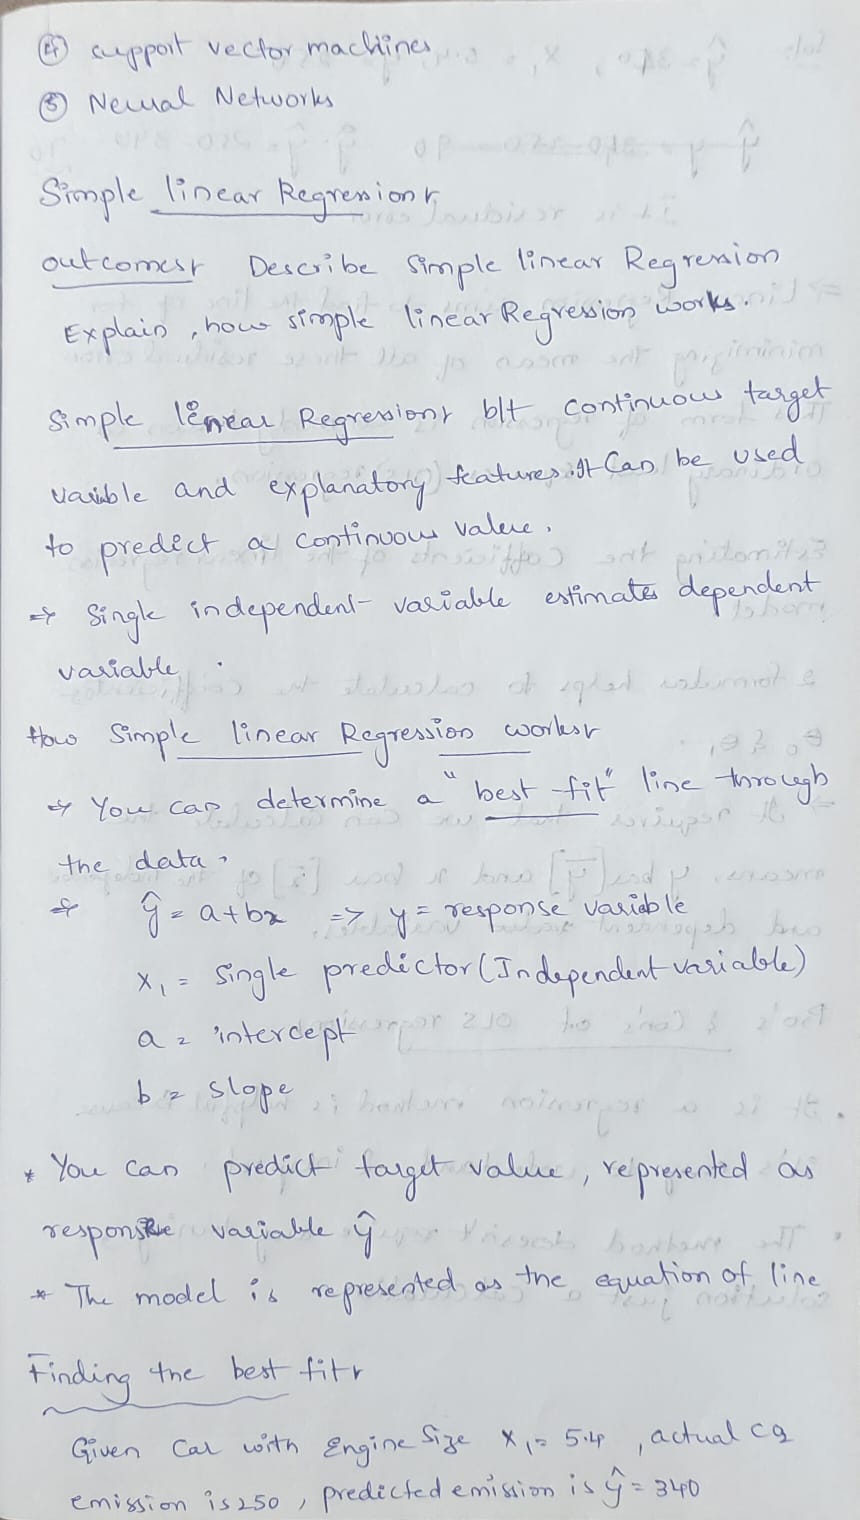 ④ support vector machines
⑤ Neural Networks
Simple linear Regression:
outcomes: Describe simple linear Regression
Explain, how simple linear Regression works.
Simple linear Regression: b/t continuous target
varible and explanatory features. It Can be used
to predict a continuous value.
⇒ Single independent variable estimates dependent
variable.
How Simple linear Regression works:
⇒ You can determine a "best fit" line through
the data.
⇒ ŷ = a+bx => y = response variable
x₁ = Single predictor (Independent variable)
a = intercept
b = slope
* You can predict target value, represented as
response variable ŷ
* The model is represented as the equation of line
Finding the best fit:
Given Car with Engine Size x₁ = 5.4, actual co2
emission is 250, predicted emission is ŷ = 340